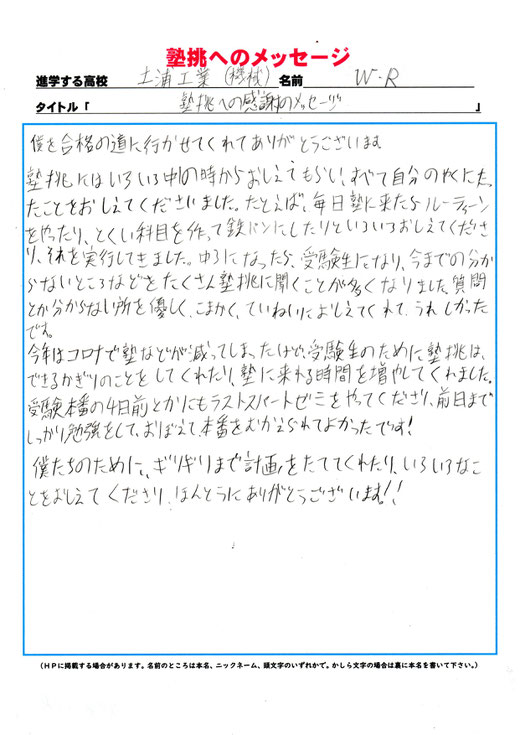 塾挑へのメッセージ
進学する高校 土浦工業(機械) 名前 W・R
タイトル「 塾挑への感謝のメッセージ 」
僕を合格の道に行かせてくれてありがとうございます。
塾挑にはいろいろ中1の時からおしえてもらい、すべて自分のやくにたっ
たことをおしえてくださいました。たとえば、毎日塾に来たらルーティーン
をやったり、とくい科目を作って鉄パンにしたりといろいろおしえてくださ
り、それを実行してきました。中3になったら、受験生になり、今までの分か
らないところなどをたくさん塾挑に聞くことが多くなりました。質問
とか分からない所を優しく、こまかく、ていねいにおしえてくれて、うれしかった
です。
今年はコロナで塾などが減ってしまったけど、受験生のために塾挑は、
できるかぎりのことをしてくれたり、塾に来れる時間を増やしてくれました。
受験本番の4日前とかにもラストスパートゼミをやってくださり、前日まで
しっかり勉強をして、おぼえて、本番をむかえられてよかったです!
僕たちのために、ギリギリまで計画をたててくれたり、いろいろなこ
とをおしえてくださり、ほんとうにありがとうございます!!
(HPに掲載する場合があります。名前のところは本名、ニックネーム、頭文字のいずれかで。かしら文字の場合は裏に本名を書いて下さい。)